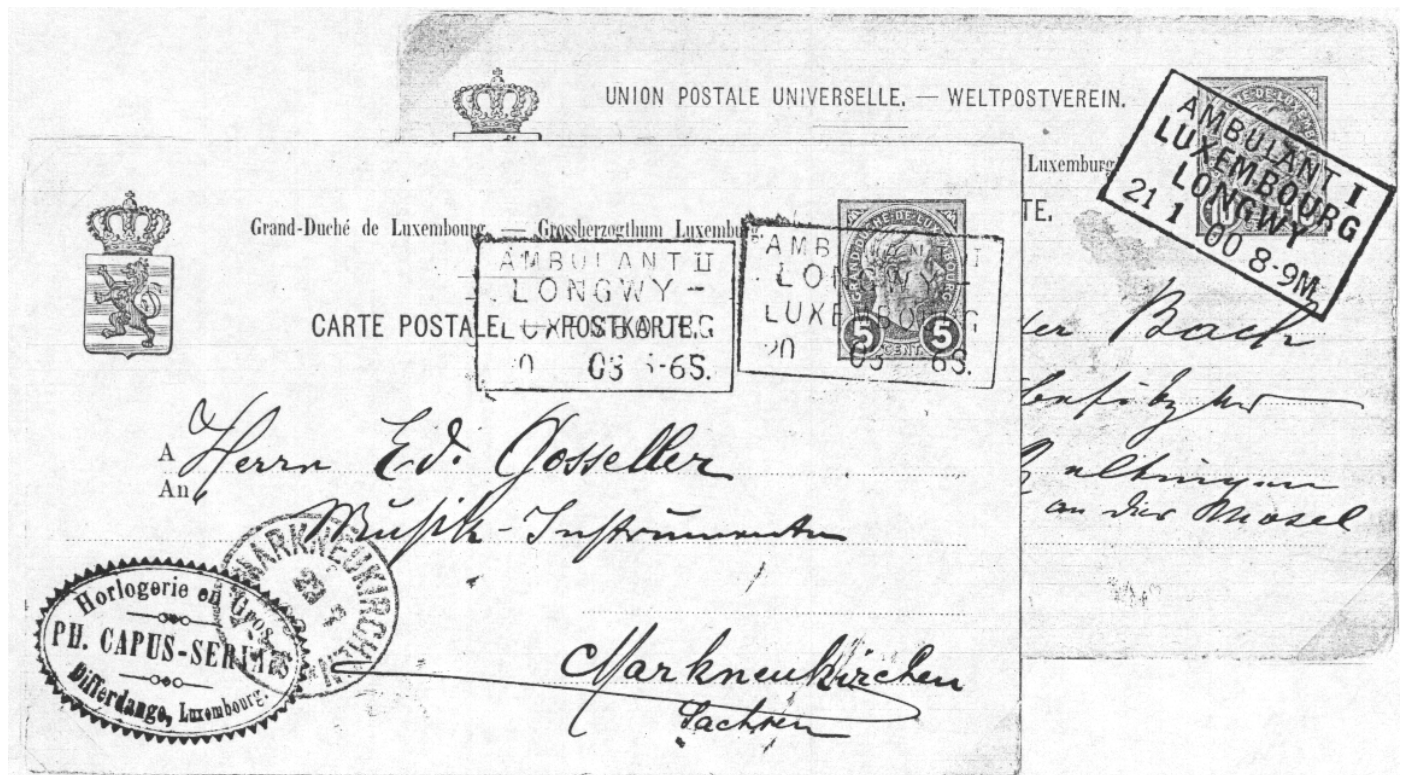 UNION POSTALE UNIVERSELLE. — WELTPOSTVEREIN.
Luxemburg
TE.
AMBULANT I
LUXEMBOURG
LONGWY
21 1 00 8-9M
Bach
an der Mosel
Grand-Duché de Luxembourg. — Grossherzogthum Luxemburg
CARTE POSTALE — POSTKARTE.
AMBULANT II
LONGWY-
LUXEMBOURG
03 5-6S.
AMBULANT II
LONGWY-
LUXEMBOURG
20 03 6S.
GRAND-DUCHÉ-DE-LUXEMBOURG
5 CENT. 5
A
An
Herrn Ed. Gosseller
Musik-Instrumente
Markneukirchen
Sachsen
MARKNEUKIRCHEN
23
Horlogerie en Gros
PH. CAPUS-SERTAIS
Differdange, Luxembourg.